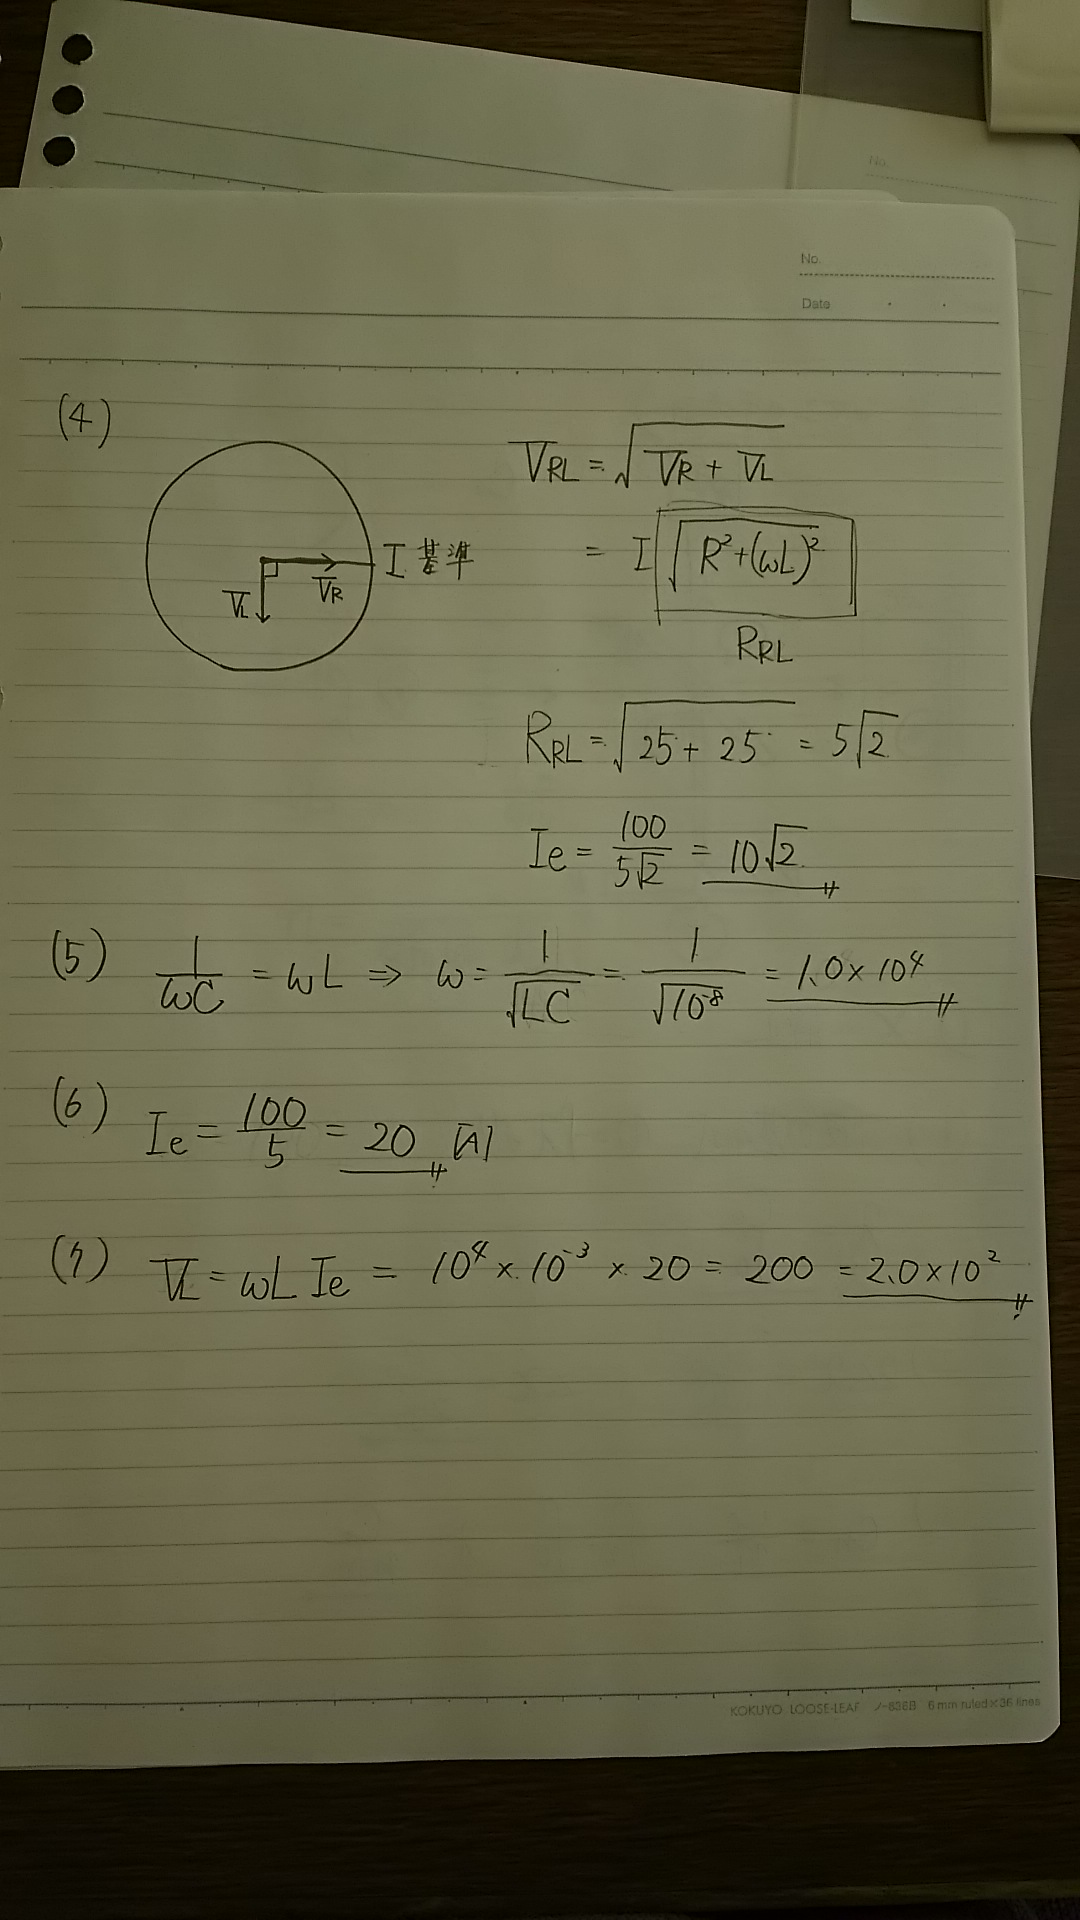 No.
No.
Date
(4)
V_RL = √(V_R + V_L)
I 基準
V_R
V_L
= I √(R² + (ωL)²)
R_RL
R_RL = √(25 + 25) = 5√2
Ie = 100/5√2 = 10√2
(5) 1/ωC = ωL ⇒ ω = 1/√LC = 1/√10⁻⁸ = 1.0 × 10⁴
(6) Ie = 100/5 = 20 [A]
(7) V_L = ωL Ie = 10⁴ × 10⁻³ × 20 = 200 = 2.0 × 10²
KOKUYO LOOSE-LEAF ノ-836B 6 mm ruled × 36 lines